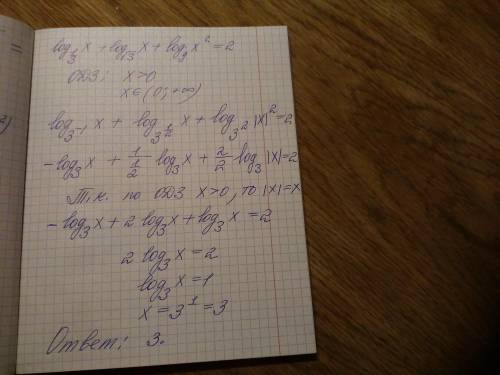 log_{1/3} x + log_{√3} x + log_9 x² = 2
ОДЗ: x>0
x∈(0;+∞)
log_{3^{-1}} x + log_{3^{1/2}} x + log_{3^2} |x|² = 2
-log_3 x + 1/(1/2) log_3 x + 2/2 log_3 |x| = 2
Т.к. по ОДЗ x>0, то |x|=x
-log_3 x + 2 log_3 x + log_3 x = 2
2 log_3 x = 2
log_3 x = 1
x = 3^1 = 3
Ответ: 3.